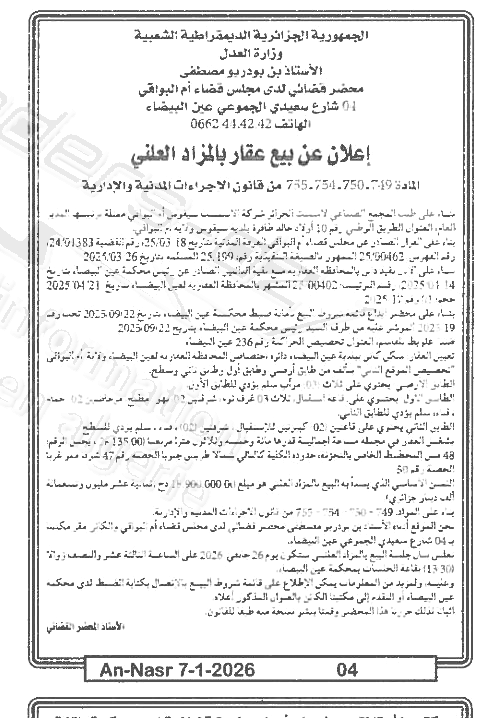 الجمهورية الجزائرية الديمقراطية الشعبية
وزارة العدل
الأستاذ بن بودريو مصطفى
محضر قضائي لدى مجلس قضاء أم البواقي
04 شارع سعيدي الجموعي عين البيضاء
الهاتف 0662.44.42.42
إعلان عن بيع عقار بالمزاد العلني
المادة 749.-750.-754.-755 من قانون الاجراءات المدنية والإدارية
بناء على طلب المجمع الصناعي لاسمنت الجزائر شركة الاسمنت سيقوس أم البواقي ممثلة برئيسها المدير
العام، العنوان الطريق الوطني رقم 10 أولاد خالد ظافرة بلدية سيقوس ولاية أم البواقي.
بناء على القرار الصادر عن مجلس قضاء أم البواقي الغرفة المدنية بتاريخ 25/03/18 رقم القضية 24/01383
رقم الفهرس 25/00462 الممهور بالصيغة التنفيذية رقم 25.199 المسلمة بتاريخ 2025.03.26
بتاريخ
رقم الترتيب 25/00402 المشهور بالمحافظة العقارية لعين البيضاء بتاريخ 2025/04/21
بناء على محضر إيداع قائمة شروط البيع بأمانة ضبط محكمة عين البيضاء بتاريخ 2025/09/22 تحت رقم
المؤشر عليه من طرف السيد رئيس محكمة عين البيضاء بتاريخ 2025/09/22
العنوان تخصيص الحراكتة رقم 236 عين البيضاء
تعيين العقار: سكن كائن ببلدية عين البيضاء دائرة إختصاص المحافظة العقارية لعين البيضاء ولاية أم البواقي
يتألف من طابق أرضي وطابق أول وطابق ثاني وسطح.
الطابق الأرضي يحتوي على ثلاث (03) مرآب سلم يؤدي للطابق الأول.
الطابق الأول يحتوي على قاعة استقبال، ثلاث 03 غرف نوم، شرفتين 02 بهو مطبخ مرحاضين 02 حمام
، فناء، سلم يؤدي للطابق الثاني.
الطابق الثاني يحتوي على قاعتين (02) كبيرتين للإستقبال، شرفتين (02)، فناء، سلم يؤدي للسطح
يشغل العقار في مجمله مساحة إجمالية قدرها مائة وخمسة وثلاثون مترا مربعا (135.00م2) يحمل الرقم:
48 من المخطط الخاص بالتجزئة، حدوده الكلية كالتالي شمالا طريق جنوبا الحصة رقم 47 شرقا ممر غربا
الحصة رقم 50
الثمن الأساسي الذي يبدأ به البيع بالمزاد العلني هو مبلغ 18.900.000.00 دج (ثمانية عشر مليون وتسعمائة
ألف دينار جزائري)
بناء على المواد 749 - 750 - 754 - 755 من قانون الاجراءات المدنية والإدارية.
نحن الموقع أدناه الأستاذ بن بودريو مصطفى محضر قضائي لدى مجلس قضاء أم البواقي والكائن مقر مكتبنا
بـ 04 شارع سعيدي الجموعي عين البيضاء.
نعلن بأن جلسة البيع بالمزاد العلني ستكون يوم 26 جانفي 2026 على الساعة الثالثة عشر والنصف زوالا
(13:30) بقاعة الجلسات بمحكمة عين البيضاء.
وعليه، ولمزيد من المعلومات يمكن الإطلاع على قائمة شروط البيع بالاتصال بكتابة الضبط لدى محكمة
عين البيضاء أو التقدم إلى مكتبنا الكائن بالعنوان المذكور أعلاه.
اثباتا لذلك حررنا هذا المحضر وقمنا بنشر نسخة منه طبقا للقانون.
الأستاذ المحضر القضائي
An-Nasr 7-1-2026 04